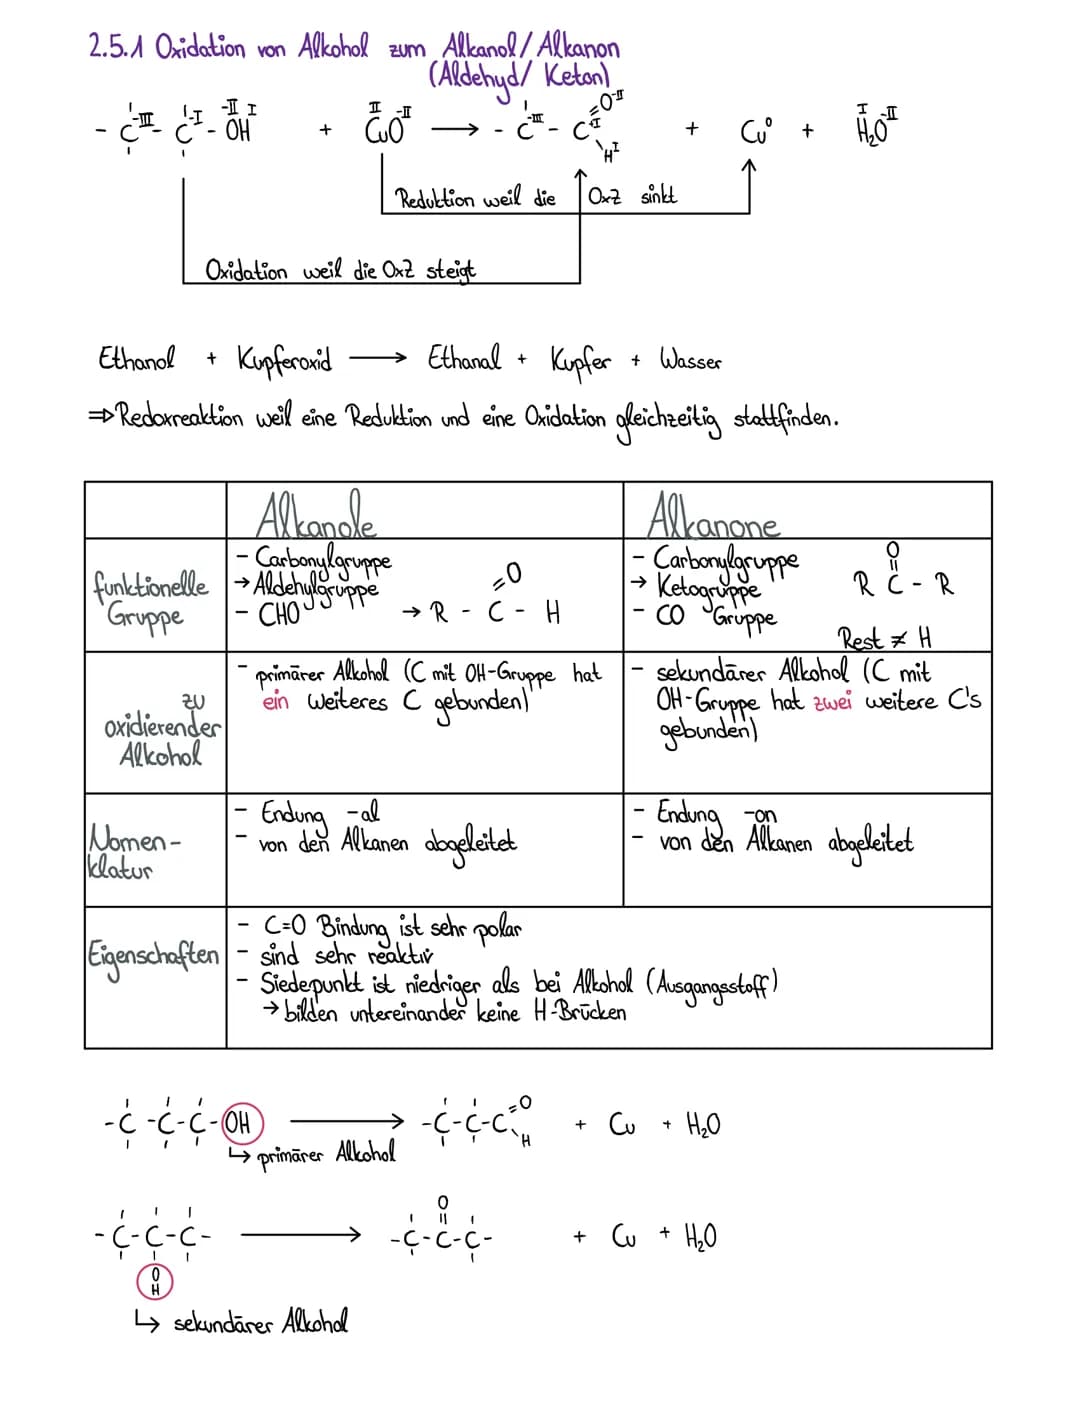 2.5.1 Oxidation von Alkohol zum Alkanol/Alkanon
(Aldehyd/Keton)
- C^-III - C^-I - O^-II H^I + Cu^II O^-II → - C^-III - C^I =O^-II \H^I + Cu^0 + H₂^I O^-II
Reduktion weil die OxZ sinkt
Oxidation weil die OxZ steigt
Ethanol + Kupferoxid → Ethanal + Kupfer + Wasser
⇒ Redoxreaktion weil eine Reduktion und eine Oxidation gleichzeitig stattfinden.
Alkanole
Alkanone
funktionelle
Gruppe
- Carbonylgruppe
→ Aldehylgruppe
- CHO
=O
→ R - C - H
- Carbonylgruppe
→ Ketogruppe
- CO Gruppe
O
R C - R
Rest ≠ H
zu
oxidierender
Alkohol
- primärer Alkohol (C mit OH-Gruppe hat
ein weiteres C gebunden)
- sekundärer Alkohol (C mit
OH-Gruppe hat zwei weitere C's
gebunden)
Nomen-
klatur
- Endung -al
- von den Alkanen abgeleitet
- Endung -on
- von den Alkanen abgeleitet
Eigenschaften
- C=O Bindung ist sehr polar
- sind sehr reaktiv
- Siedepunkt ist niedriger als bei Alkohol (Ausgangsstoff)
→ bilden untereinander keine H-Brücken
-C-C-C-OH → -C-C-C=O \H + Cu + H₂O
↳ primärer Alkohol
O
-C-C-C- → -C-C-C- + Cu + H₂O
O
H
↳ sekundärer Alkohol